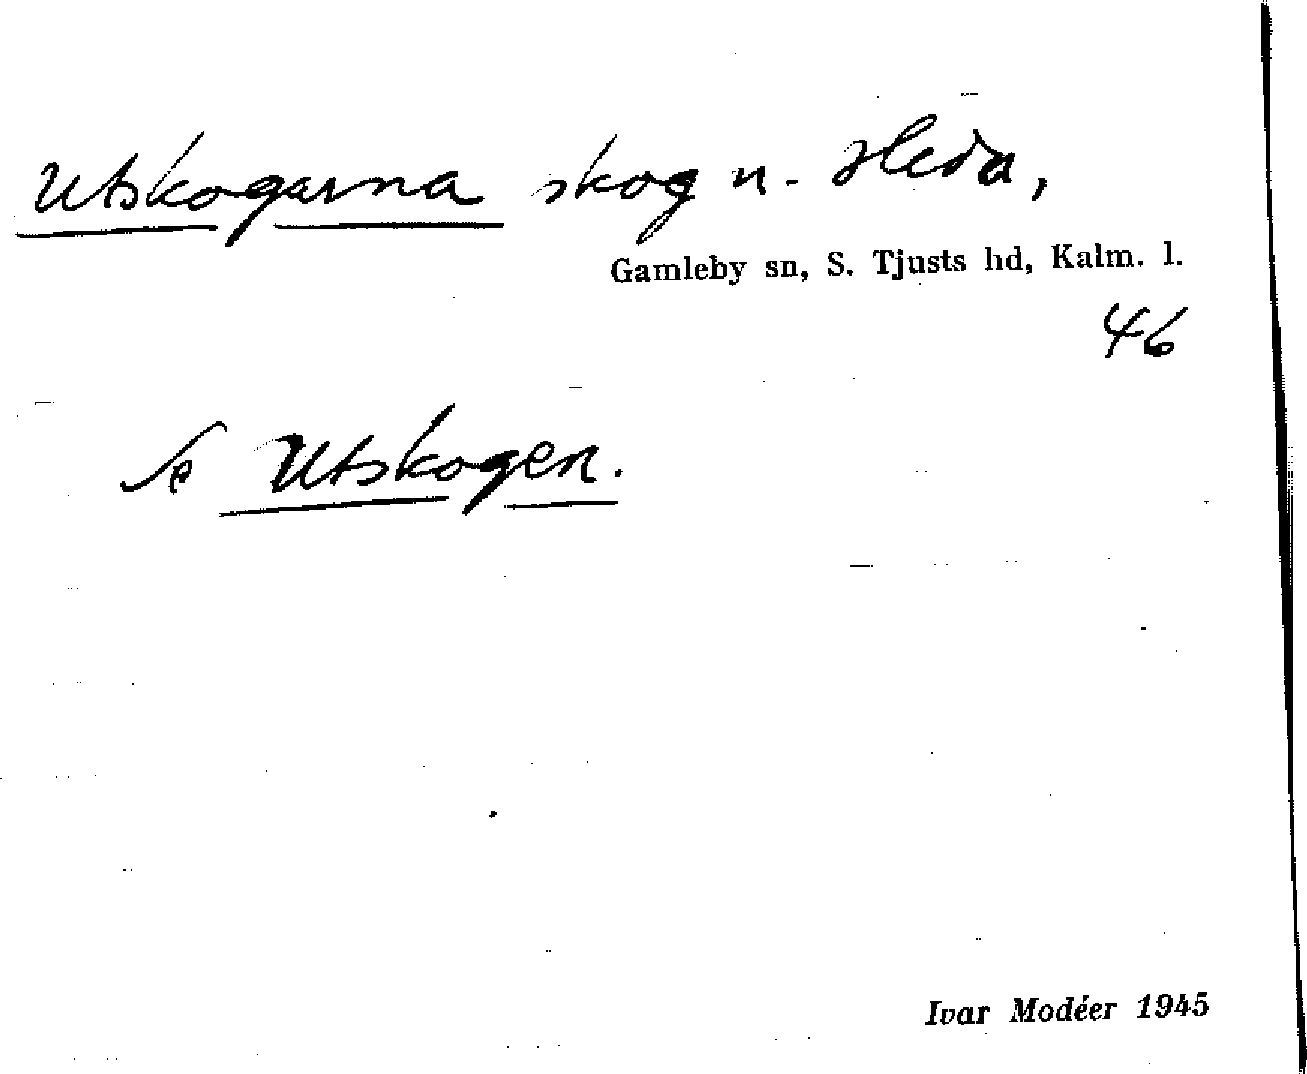 Utskogarna skog u. Heda,
Gamleby sn, S. Tjusts hd, Kalm. l.
46
Se Utskogen.
Ivar Modéer 1945